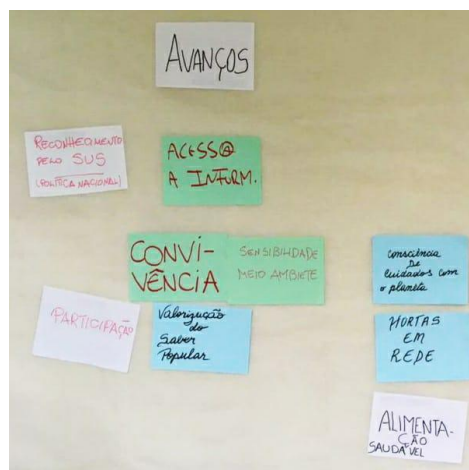 AVANÇOS
RECONHECIMENTO
PELO SUS
(POLÍTICA NACIONAL)
ACESS@
A INFORM.
CONVI-
VÊNCIA
SENSIBILIDADE
MEIO AMBIETE
consciência
De
cuidados com
o planeta
PARTICIPAÇÃO
Valorização
do
Saber
Popular
HORTAS
EM
REDE
ALIMENTA-
ÇÃO
SAUDÁVEL